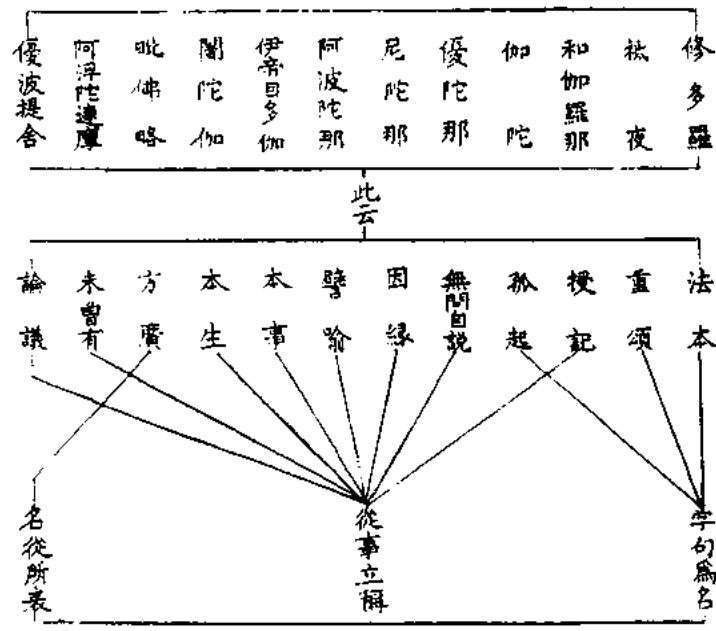 修多羅
祇夜
和伽羅那
伽陀
優陀那
尼陀那
阿波陀那
伊帝目多伽
闍陀伽
毗佛略
阿浮陀達摩
優波提舍
此云
法本
重頌
授記
孤起
無問自説
因緣
譬喻
本事
本生
方廣
未曾有
論議
字句爲名
從事立稱
名從所表